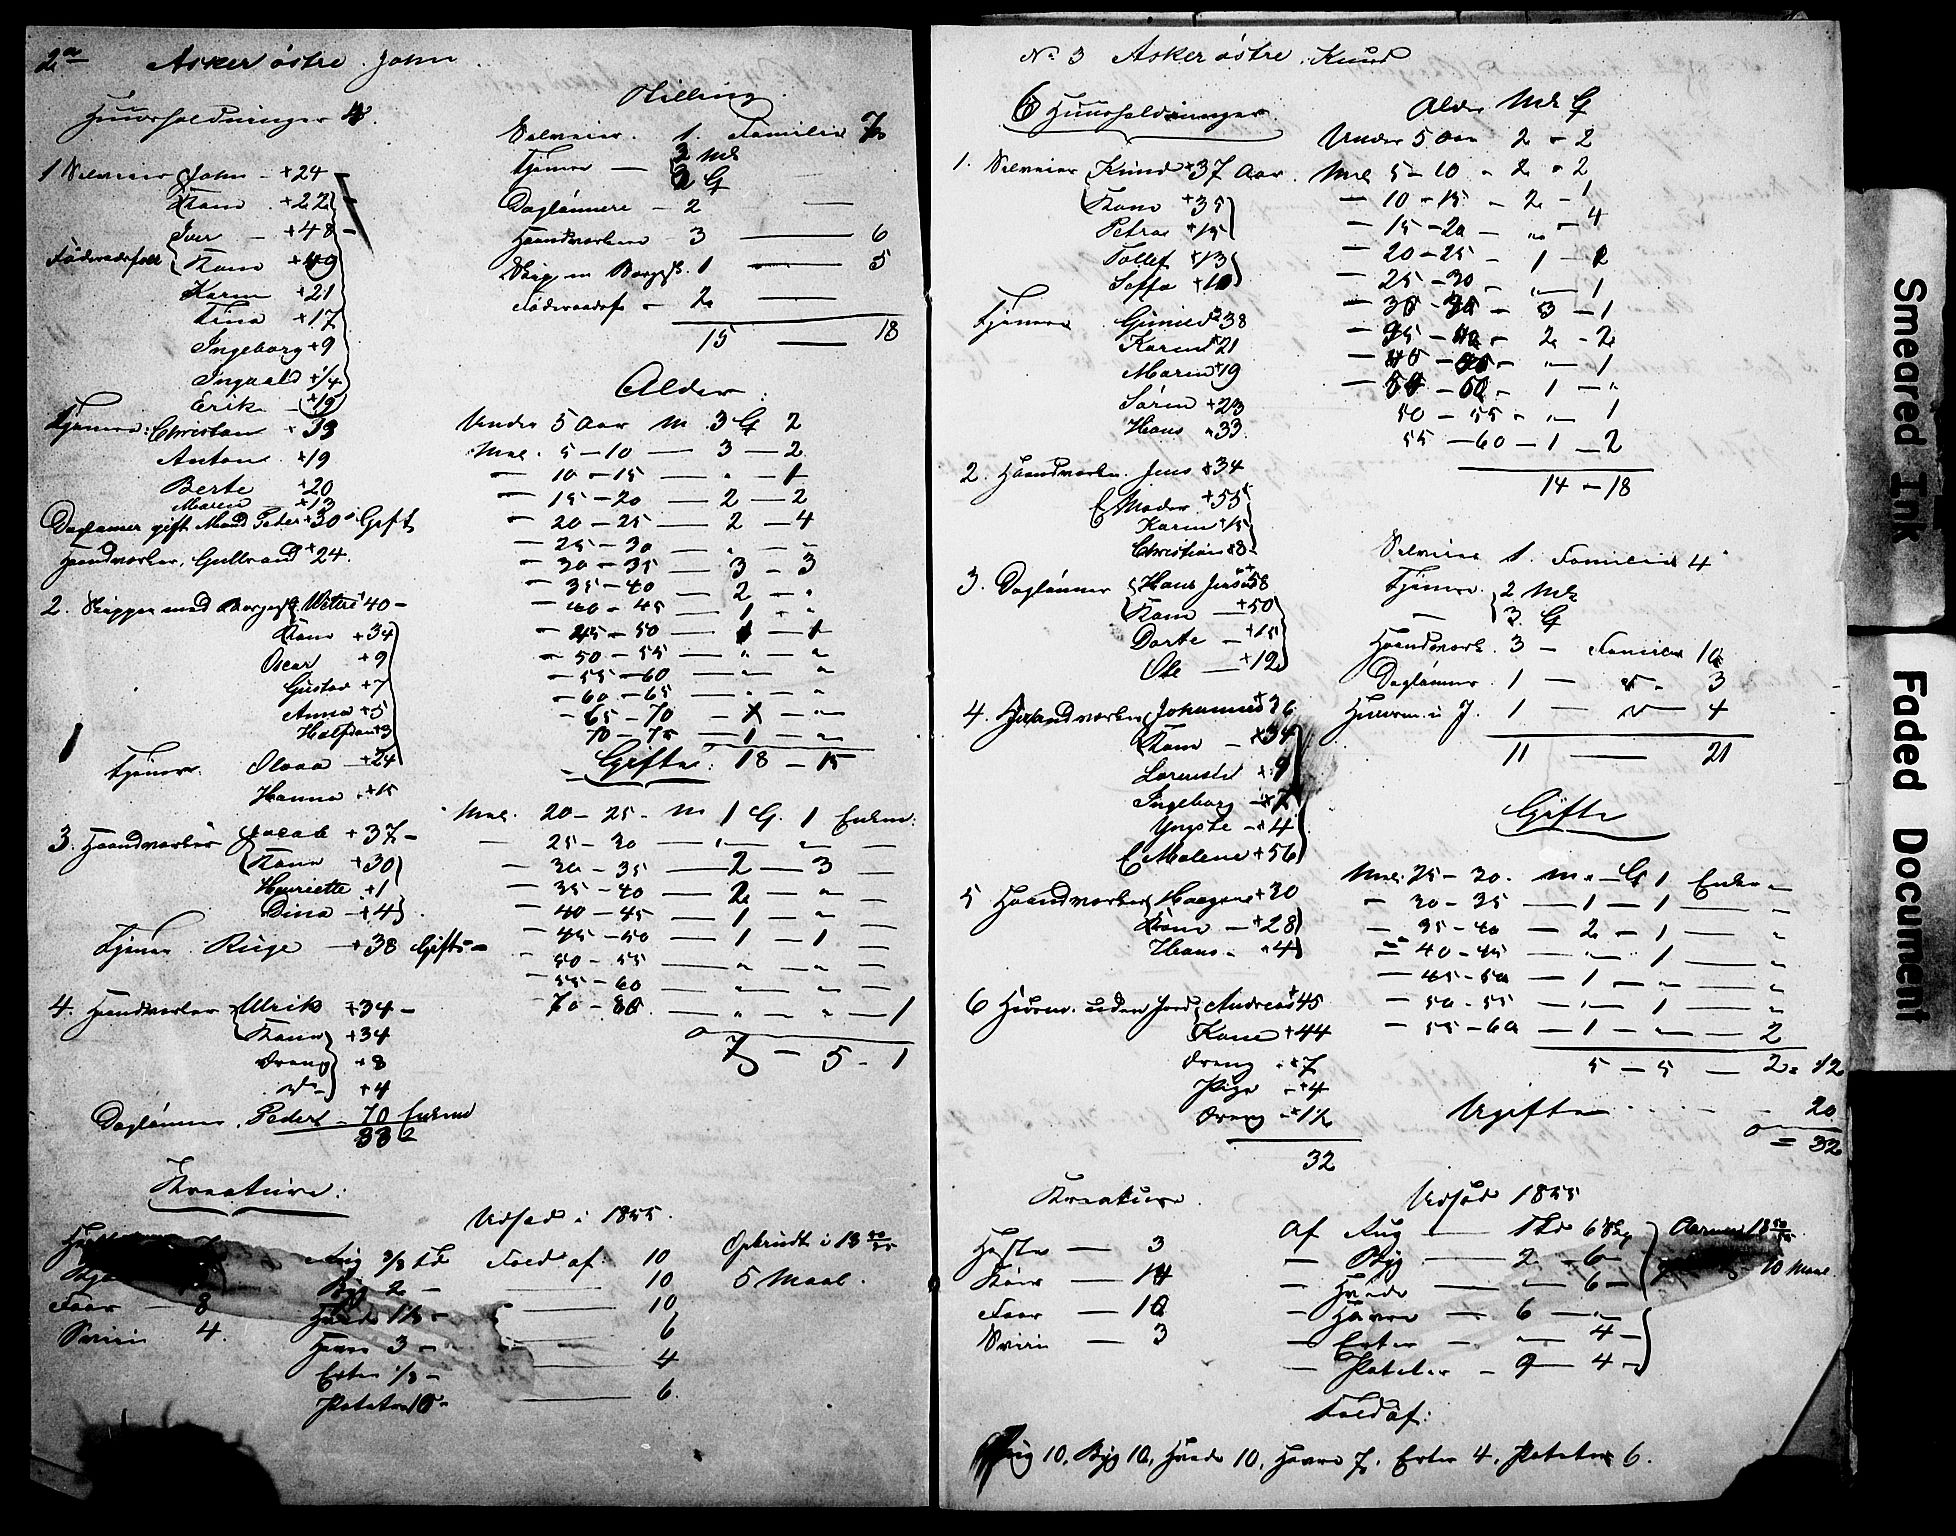 2a Asker østre John.
Huusholdninger 4.
1 Selveier John +24 -
Kone +22 -
Iver - +48 -
Føderaadsfolk Kone +49
Karen +21
Tina +17
Ingeborg +9
Ingvald +1/4
Erik +19
Tjenere: Christian + 33
Anton +19
Berte +20
Maren +13
Daglønner gift Mand Peder +30 Gift
Haandverker, Gulbrand +24.
2. Skipper med Borgersk. +40 -
Kone +34
Oscar +9
Gustav +7
Anna +5
Halfdan +3
Tjenere. Olava +24
Hanna +15
3. Haandverker Jacob +37 -
Kone +30
Henriette +1
Dina +4
Tjener Rüge +38 Gift -
4. Haandverker Ulrik +34 -
Kone +34
Dreng +8
do +4
Daglønner, Peder - 70 Enkem
33
Stilling
Selveier. 1. Familie 7
Tjenere - 3 Mk
2 Q
Daglønnere - 2 -
Haandverkere 3 - 6
Skipper m Borgersk. 1 - 5
Føderaadsf - 2 -
15 - 18
Alder:
Under 5 Aar M. 3 Q 2
Mel. 5-10 - 3 - 2
- 10-15 - " - 1
- 15-20 - 2 - 2
- 20-25 - 2 - 4
- 25-30 - " - "
- 30-35 - 3 - 3
- 35-40 - 2 - "
- 40-45 - 1 - "
- 45-50 - 1 - 1
- 50-55 - " - "
- 55-60 - " - "
- 60-65 - " - "
- 65-70 - - "
70-75 - 1 - "
Gifte: 18 - 15
Mel. 20-25 - m 1 Q. 1 Enkem:
- 25-30 - " - " -
- 30-35 - 2 - 3 -
- 35-40 - 2 - " -
- 40-45 - 1 - " -
- 45-50 - 1 - 1 -
- 50-55 - " - " -
- 55-60 - " - " -
- 70-80 - " - " - 1
7 - 5 - 1
Kreature:
8
Sviin 4.
Udsæd i 1855.
Rug 3/8 Td Fold af: 10
Byg 2 - 10
Hvede - 10
Havre 3 - 6
Erter 1/8 - 4
Poteter 10 - 6.
Opbrudt i 18 50/55
5 Maal.
No 3 Asker østre. Knud
6 Huusholdninger.
1. Selveier Knud +37 Aar.
Kone +35
Petra +15
Tollef +13
Soffa +10
Tjenere Gunild 38
Karen 21
Maren +19
Søren +23
Hans +33.
2. Haandverker. Jens +34
E Moder +55
Karen +15
Christian +8
3. Daglønner Hans Jensen +58
Kone +50
Dorte +15
Ole +12
4. Haandverker Johannes +36
Kone +34
Lorentse +9
Ingeborg +7
Yngste +4
E Malene +56
5 Haandverker Haagen +30
Kone +28
Hans +4
6 Huusm. uden Jord Andreas +45
Kone +44
Dreng +7
Pige +4
Dreng +1½
32
Alder Mk Q
Under 5 Aar 2 - 2
Mel 5-10 - 2 - 2
- 10-15 - 2 - 1
- 15-20 - " - 4
- 20-25 - 1 - 2
- 25-30 - " - 1
- 30-35 - 3 - 1
- 35-40 - 2 - 2
- 40-45 - " - 1
- 1 - "
50-55 - " 1
55-60 - 1 - 2
14 - 18
Selveier 1. Familie 4
Tjenere. 2 Mk
- 3 Q
Haandverk. 3 - Familier 10
Daglønner. 1 - " 3
Huusm. u J. 1 - " 4
11 - 21
Gifte
Mel. 25-30. M " Q 1 Enkem "
- 30-35 - 1 - 1 - "
- 35-40 - 2 - 1 - "
- 40-45 - " - 1 - "
- 45-50 - 1 - " - "
- 50-55 - " - 1 - "
- 55-60 - 1 - " - 2
5 - 5 - 2 = 12
Ugifte - 20
= 32
Kreature.
Heste - 3
Køer - 14
Faar - 10
Sviin - 3
Udsæd 1855
Af Rug - 1 Td 6 Skp
- Byg - 2 - 6 -
- Hvede - " - 6 -
- Havre - 6 - " -
- Erter - " - 4 -
- Poteter - 9 - 4 -
Aarene 18 50/55
10 Maal.
Fold af:
Rug 10, Byg 10, Hvede 10, Havre 7, Erter 4, Poteter 6.
Smeared Ink
Faded Document